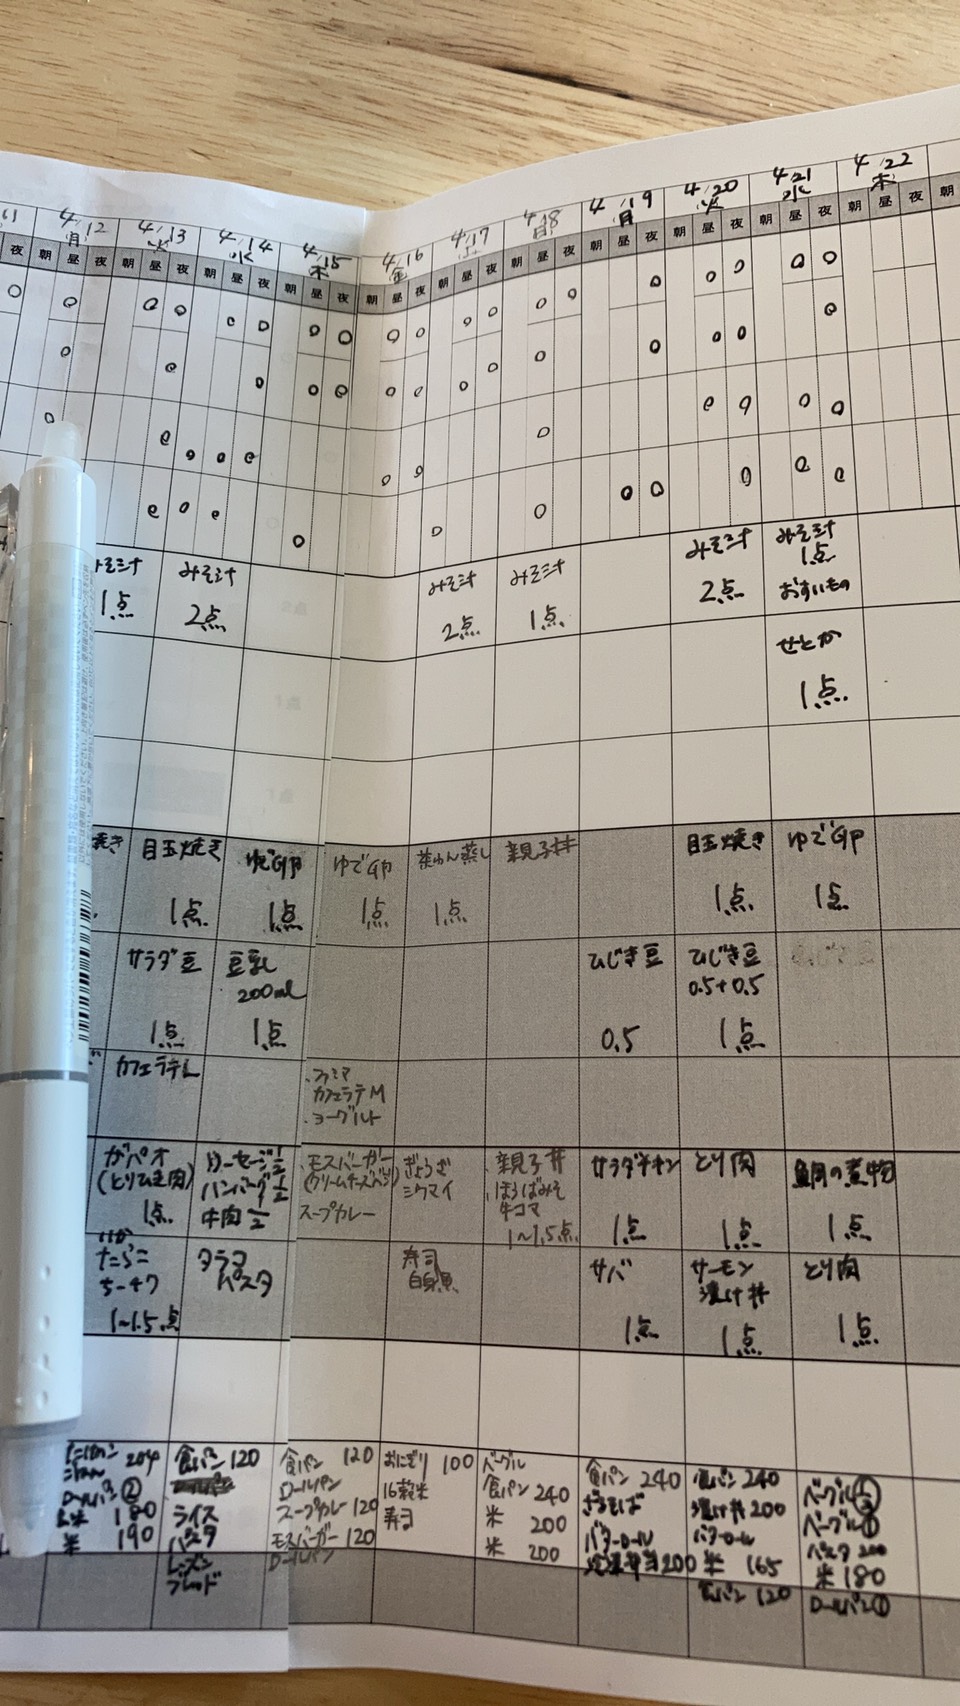 4/12 4/13 4/14 4/15 4/16 4/17 4/18 4/19 4/20 4/21 4/22
月 火 水 木 金 日 月 火 水 木
夜 朝 昼 夜 朝 昼 夜 朝 昼 夜 朝 昼 夜 朝 昼 夜 朝 昼 夜 朝 昼 夜 朝 昼 夜 朝 昼 夜 朝 昼 夜 朝 昼 夜 朝
みそ汁 みそ汁 みそ汁 みそ汁 みそ汁 みそ汁
1点 2点 2点 1点 2点 1点
おすいもの
せとか
1点
焼き 目玉焼き ゆで卵 ゆで卵 茶わん蒸し 親子丼 目玉焼き ゆで卵
1点 1点 1点 1点 1点 1点
サラダ豆 豆乳 ひじき豆 ひじき豆
200ml 0.5+0.5
1点 1点 0.5 1点
カフェラテL ・ファミマ
カフェラテM
・ヨーグルト
ガパオ ソーセージ1/2 ・モスバーガー ぎょうざ ・親子丼 サラダチキン とり肉 鯛の煮物
(とりひき肉) ハンバーグ1/2 シウマイ ・ほうばみそ
1点 牛肉1/2 スープカレー 牛コマ
1〜1.5点 1点 1点 1点
いか
たらこ タラコ 寿司 サバ サーモン とり肉
ちーちく パスタ 白身魚 漬け丼
1〜1.5点 1点 1点 1点
204 食パン 120 食パン 120 おにぎり 100 ベーグル 食パン 240 食パン 240 ベーグル
ロールパン② ロールパン 16穀米 食パン 240 ざるそば 漬け丼 200 ベーグル①
180 ライス スープカレー 120 寿司 米 200 バターロール バターロール パスタ 200
米 190 パスタ モスバーガー 120 米 200 200 米 165 米 180
レーズン ロールパン 食パン 120 ロールパン①
ブレッド